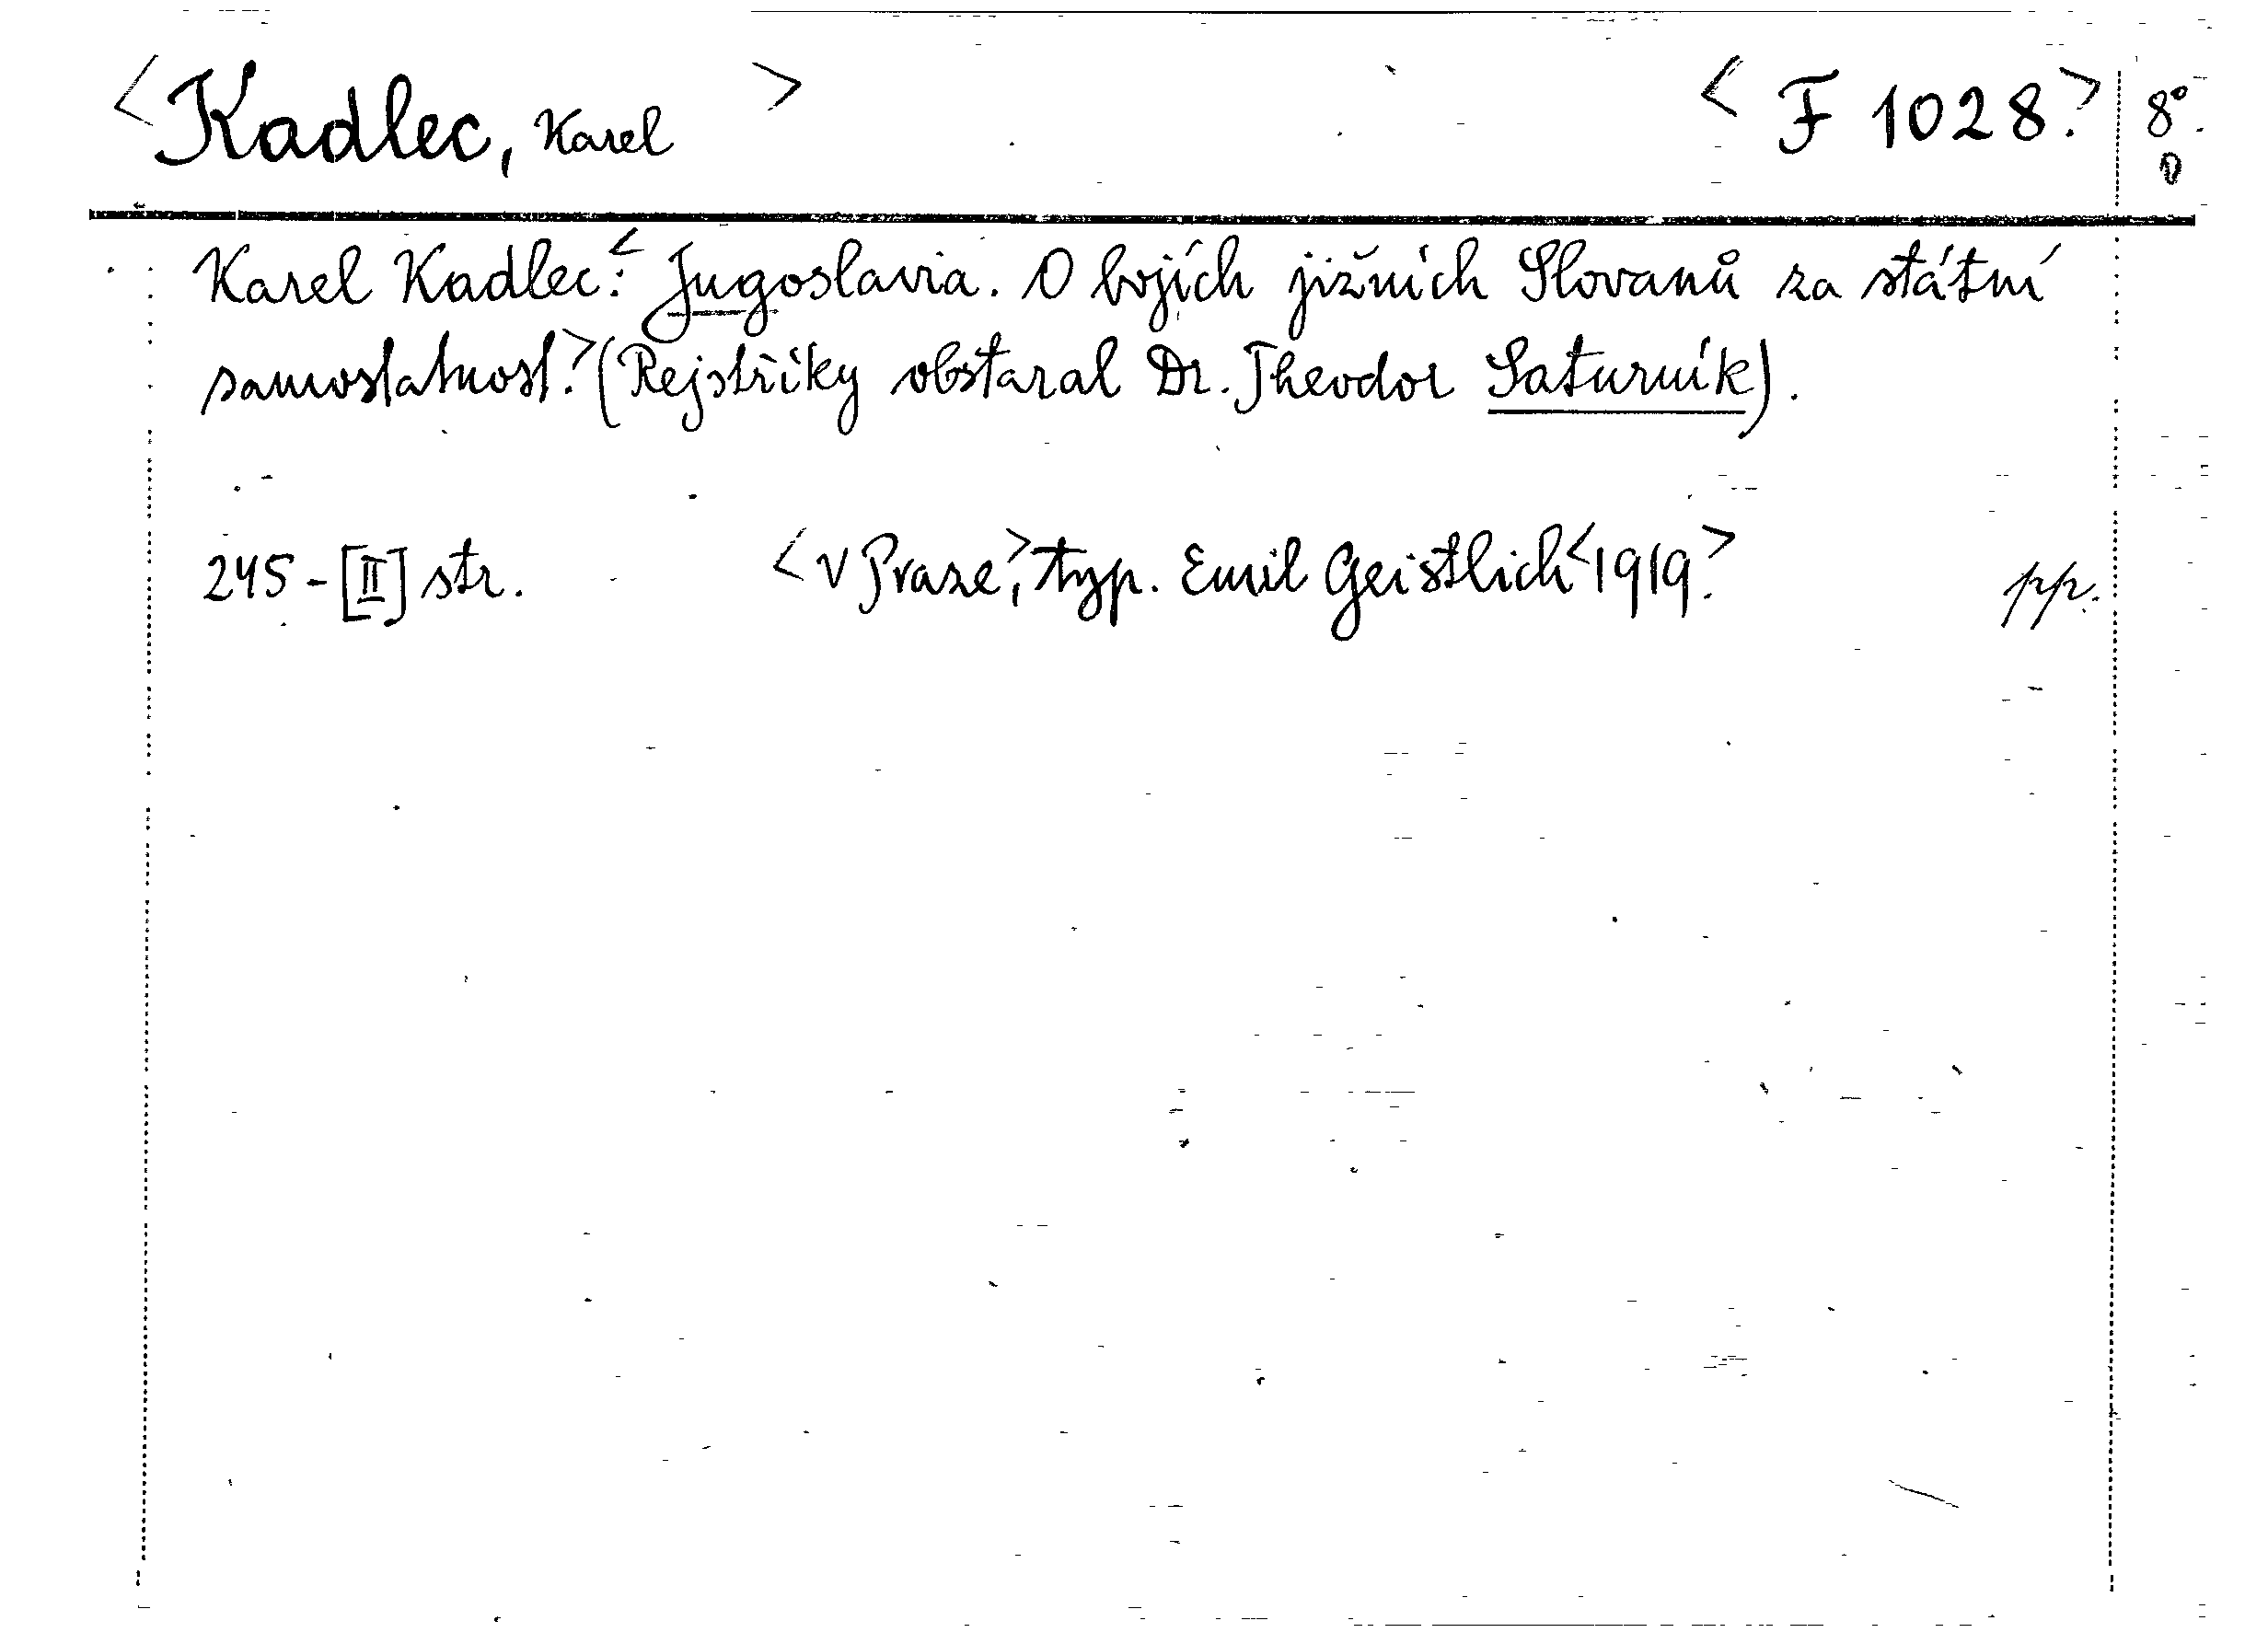 <Kadlec, Karel> <F 1028.> 8°.
D
Karel Kadlec: <Jugoslavia. O bojích jižních Slovanů za státní
samostatnost.> (Rejstříky obstaral Dr. Theodor Saturník).
245-[II] str. <V Praze,> typ. Emil Geistlich <1919.> pp.